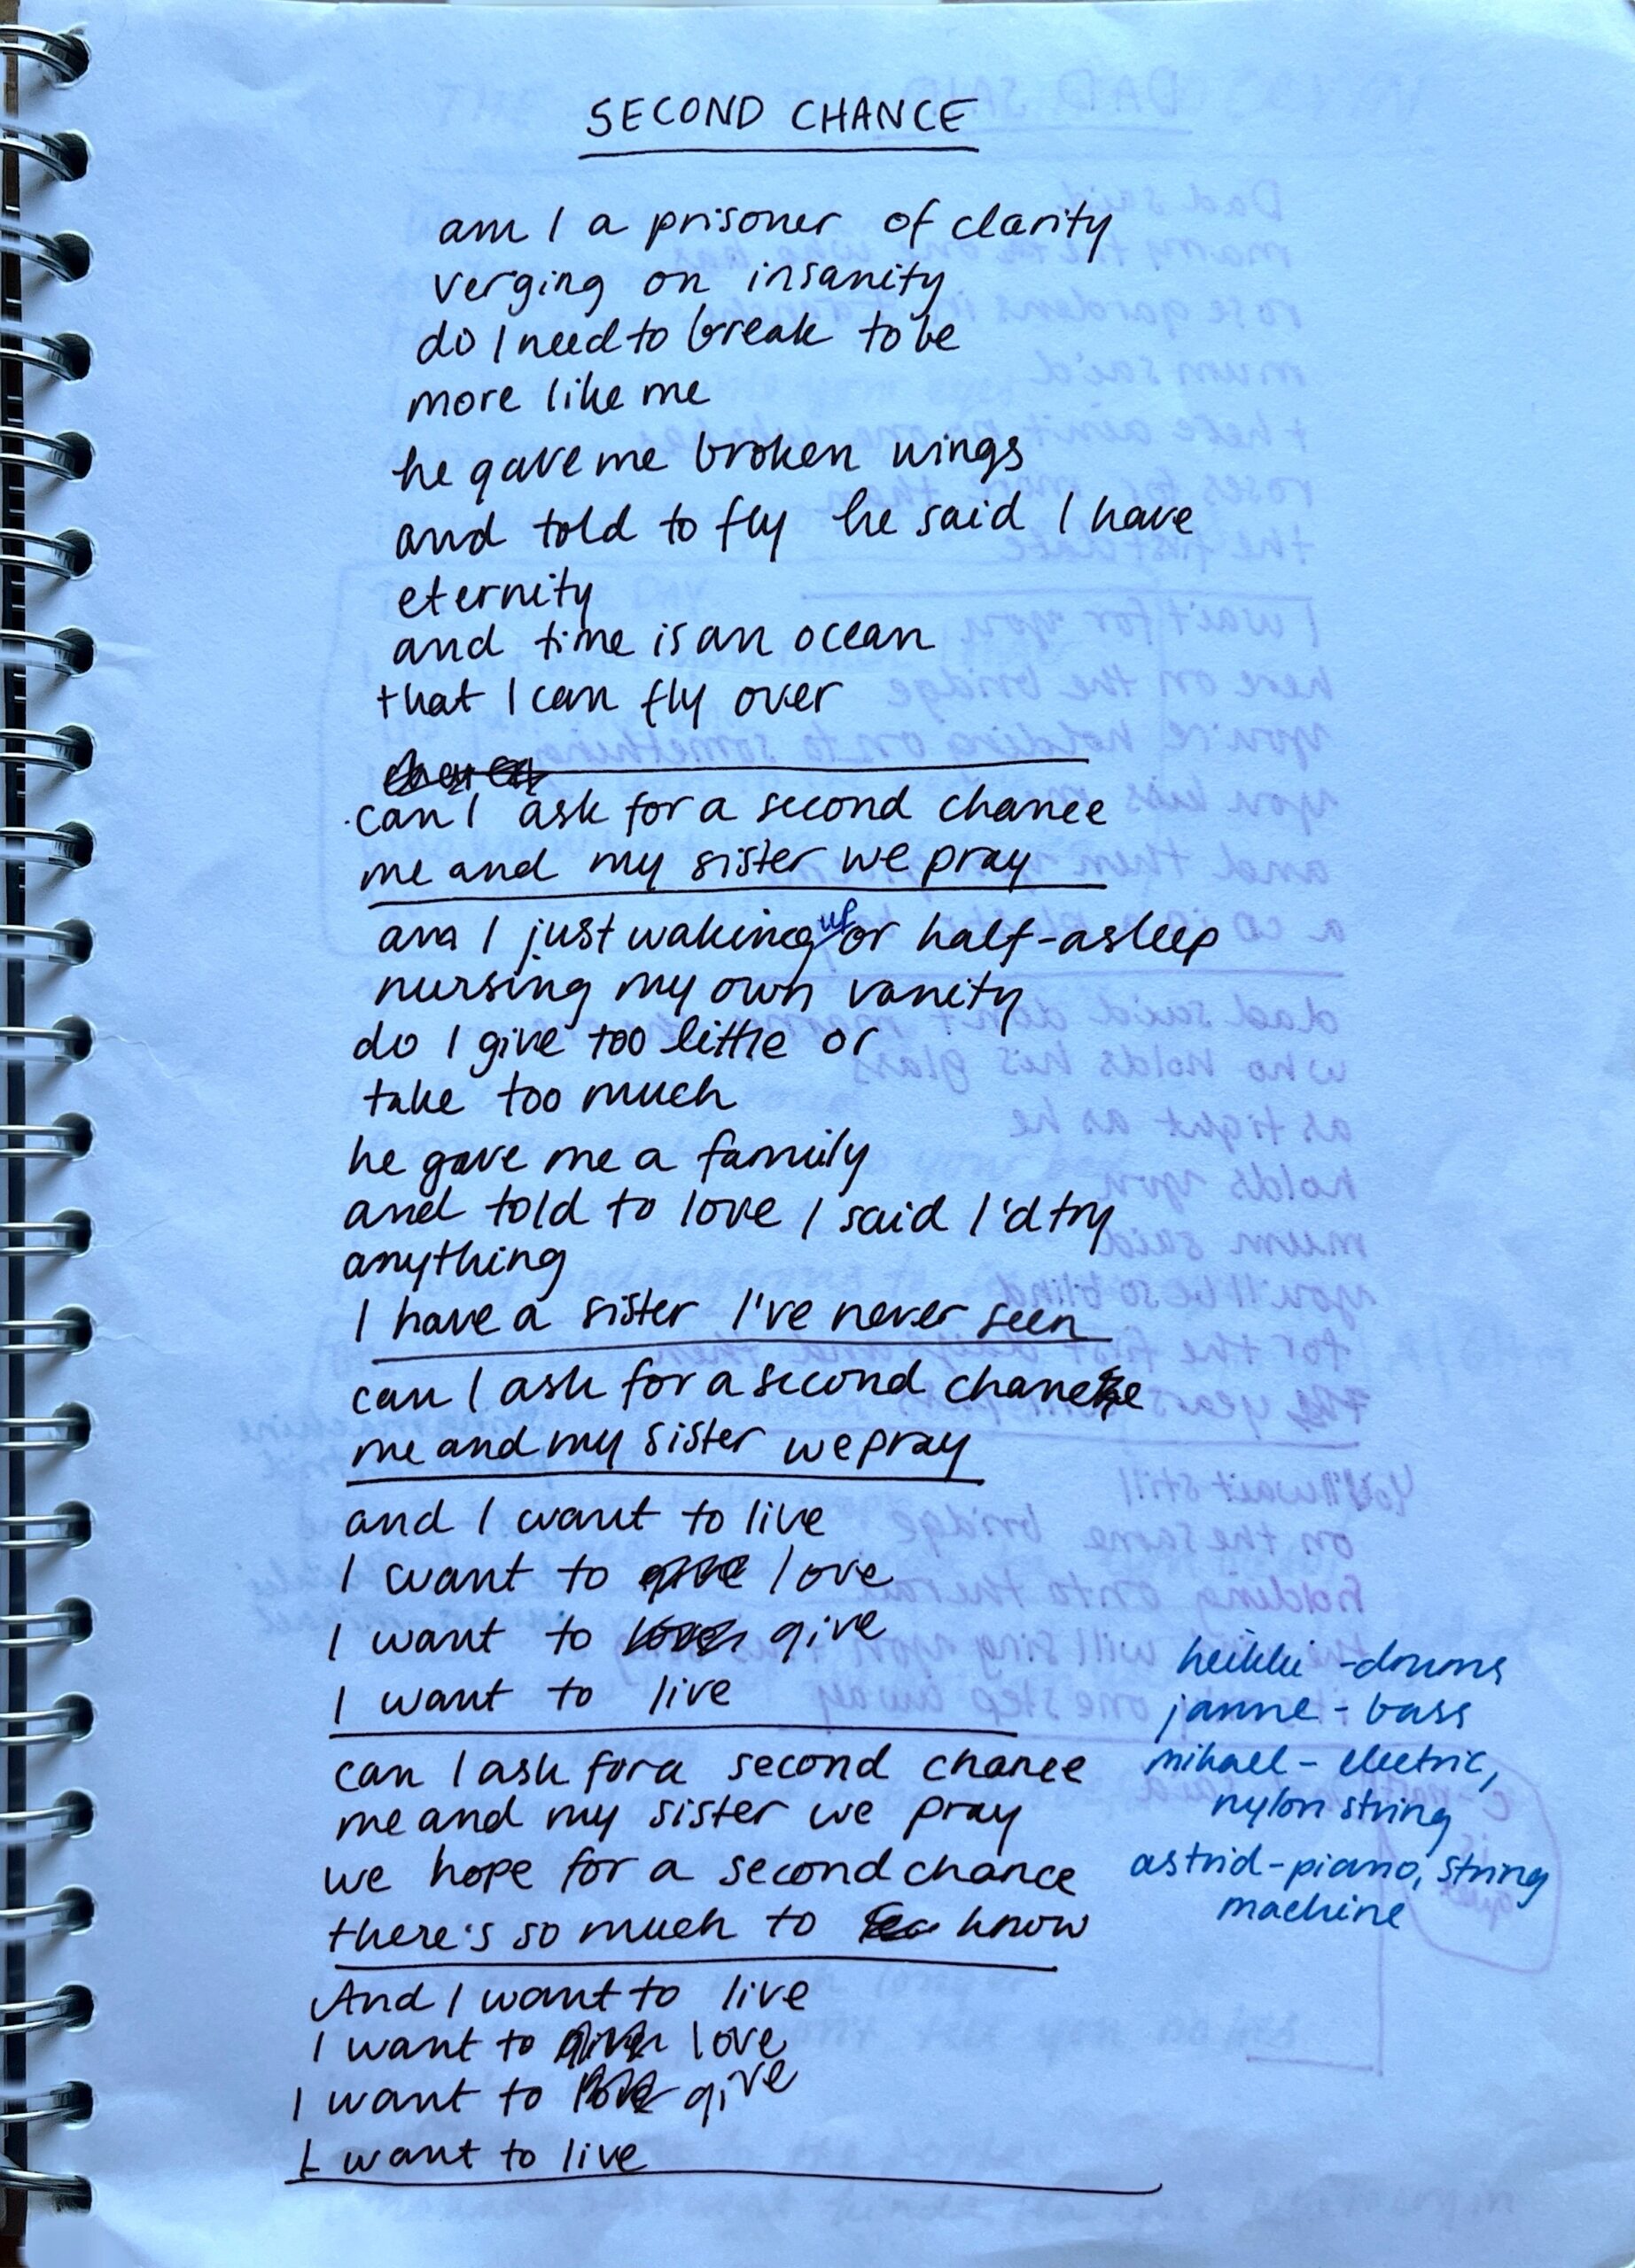 SECOND CHANCE
am I a prisoner of clarity
verging on insanity
do I need to break to be
more like me
he gave me broken wings
and told to fly he said I have
eternity
and time is an ocean
that I can fly over
can I ask for a second chance
me and my sister we pray
am I just waking up or half-asleep
nursing my own vanity
do I give too little or
take too much
he gave me a family
and told to love I said I'd try
anything
I have a sister I've never seen
can I ask for a second chance
me and my sister we pray
and I want to live
I want to love
I want to give
I want to live
can I ask for a second chance
me and my sister we pray
we hope for a second chance
there's so much to know
And I want to live
I want to love
I want to give
I want to live
heikki - drums
janne - bass
mikael - electric,
nylon string
astrid - piano, string
machine